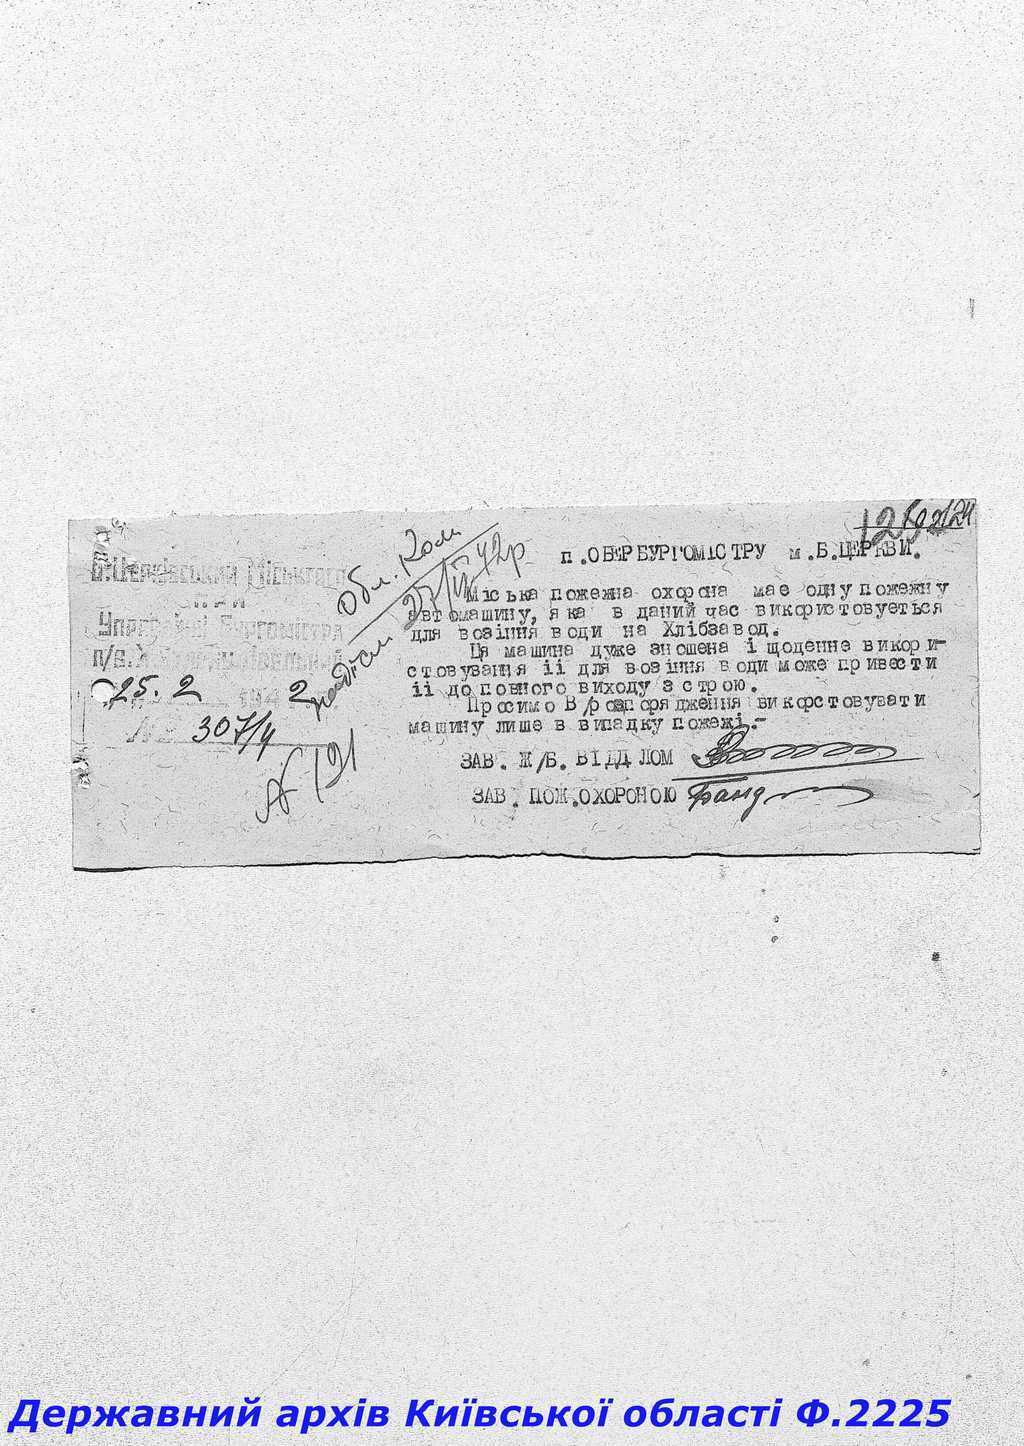 Б.Церківський Міськжгосп
Управління Бургомістра
25. 2 194 2
№ 307/4
№ 121
Обл. Ком
27/II 42р
п.ОБЕРБУРГОМІСТРУ м.Б.ЦЕРКВИ.
Міська пожежна охорона має одну пожежну
автомашину, яка в даний час використовується
для возіння води на Хлібзавод.
Ця машина дуже зношена і щоденне викори-
стовування іі для возіння води може привести
іі до повного виходу з строю.
Просимо В/розпорядження використовувати
машину лише в випадку пожежі.-
ЗАВ. Ж/Б. ВІДДІЛОМ
ЗАВ. ПОЖ.ОХОРОНОЮ
Державний архів Київської області Ф.2225